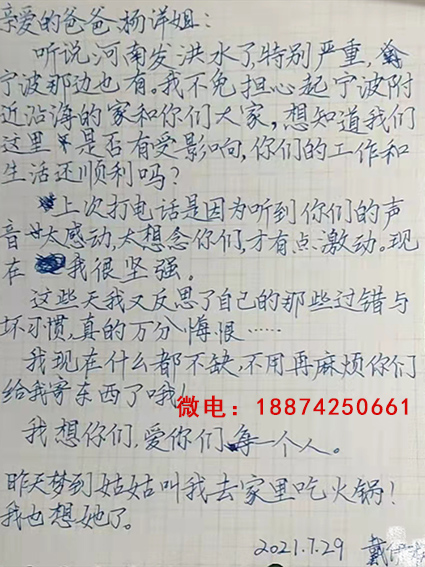 亲爱的爸爸、杨洋姐：
听说河南发洪水了,特别严重,
宁波那边也有。我不免担心起宁波附
近沿海的家和你们大家，想知道我们
这里是否有受影响,你们的工作和
生活还顺利吗？
上次打电话是因为听到你们的声
音太感动,太想念你们,才有点激动。现
在我很坚强。
这些天我又反思了自己的那些过错与
坏习惯,真的万分悔恨……
我现在什么都不缺,不用再麻烦你们
给我寄东西了哦！
微电：18874250661
我想你们,爱你们每一个人。
昨天梦到姑姑叫我去家里吃火锅！
我也想她了。
2021.7.29 戴